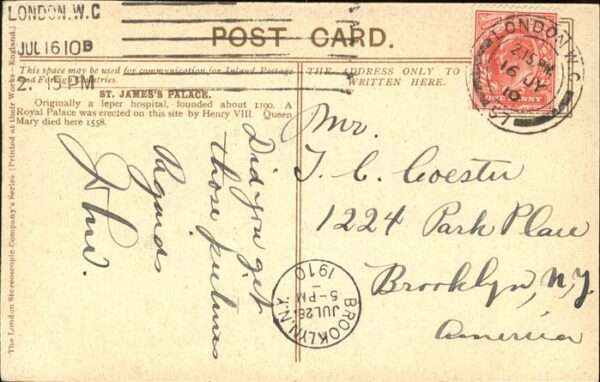 LONDON. W.C
JUL 16 10 B
2. 15 PM
POST CARD.
This space may be used for communication for Inland Postage
and Foreign Countries.
THE ADDRESS ONLY TO
WRITTEN HERE.
ST. JAMES'S PALACE.
Originally a leper hospital, founded about 1190. A
Royal Palace was erected on this site by Henry VIII. Queen
Mary died here 1558.
Did you get
those pictures
Regards
LONDON. W.C
2.15 PM
16 JY
10
57
Mr.
1224 Park Place
Brooklyn, N.Y.
America
BROOKLYN, N.Y.
JUL 26
5-PM
1910
The London Stereoscopic Company's Series (Printed at their Works—England.)